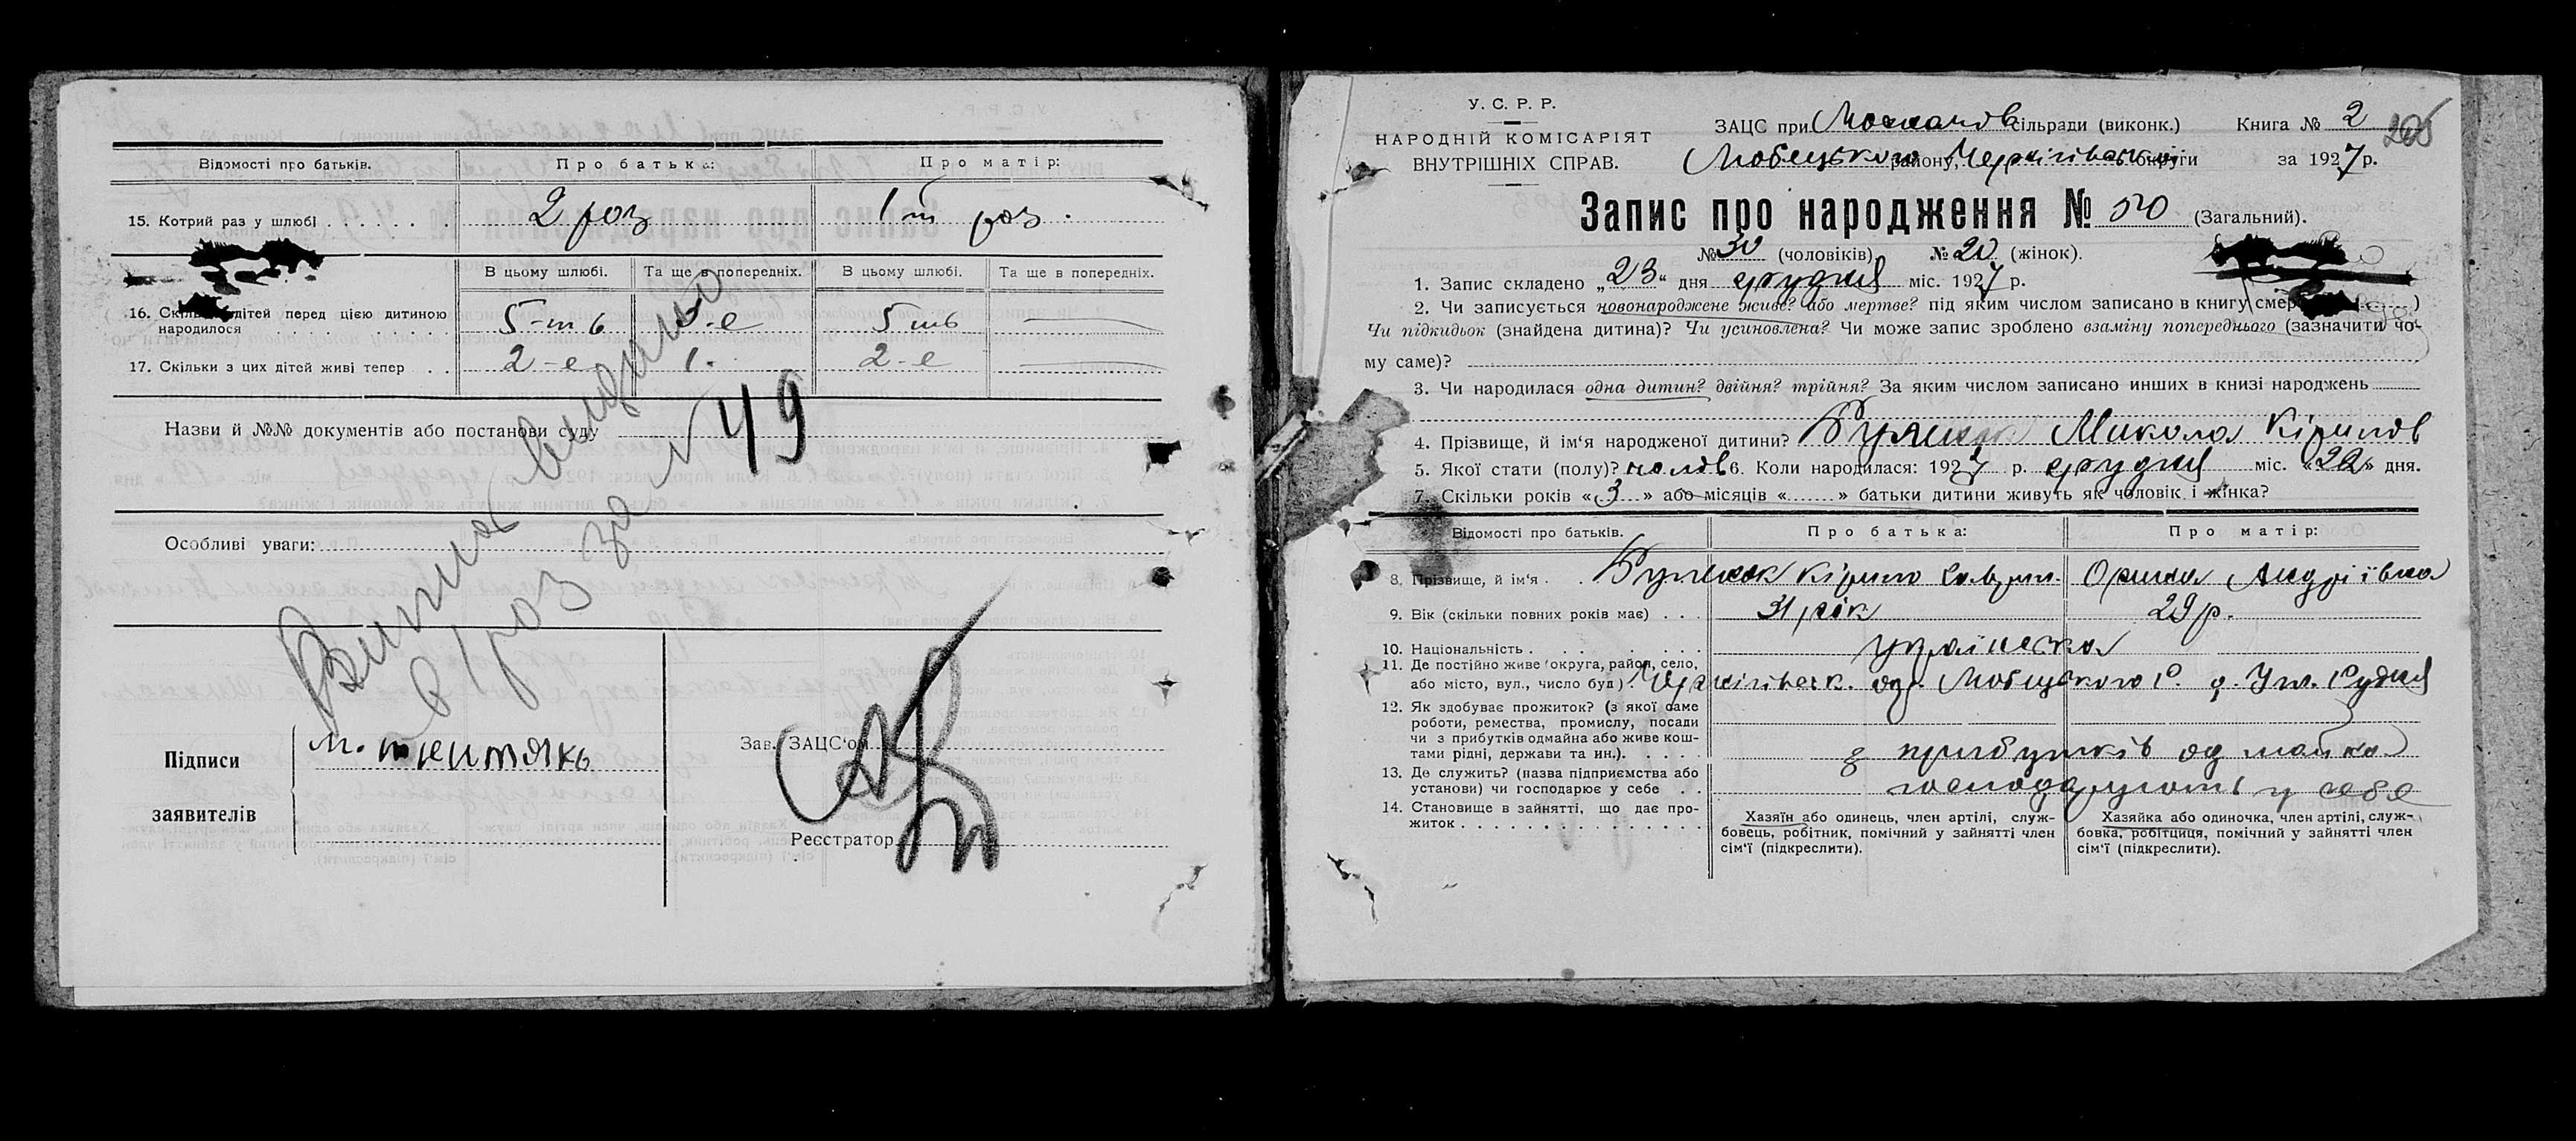 Відомості про батьків. Про батька: Про матір:
15. Котрий раз у шлюбі . . . . . . . 2 раз 1 й раз.
В цьому шлюбі. Та ще в попередніх. В цьому шлюбі. Та ще в попередніх.
16. дітей перед цією дитиною
народилося 5-ть 5 ть
17. Скільки з цих дітей живі тепер . . 2-е 1. 2-е
Назви й №№ документів або постанови суду
Виписа видано
в раз за № 49
Особливі уваги:
Підписи
заявителів
Зав. ЗАЦС'ом
Реєстратор
У. С. Р. Р.
НАРОДНІЙ КОМІСАРІЯТ
ВНУТРІШНІХ СПРАВ.
ЗАЦС при сільради (виконк.) Книга № 2
Любецького району, Чернігівської округи за 1927 р.
Запис про народження № 50 (Загальний).
№ 30 (чоловіків) № 20 (жінок).
1. Запис складено „23“ дня грудня міс. 1927 р.
2. Чи записується новонароджене живе? або мертве? під яким числом записано в книгу
Чи підкидьок (знайдена дитина)? Чи усиновлена? Чи може запис зроблено взаміну попереднього (зазначити чо-
му саме)?
3. Чи народилася одна дитин? двійня? трійня? За яким числом записано инших в книзі народжень
4. Прізвище, й ім'я народженої дитини? Микола Кірилов
5. Якої стати (полу)? чолов 6. Коли народилася: 1927 р. грудня міс. «22» дня.
7. Скільки років «3» або місяців «......» батьки дитини живуть як чоловік і жінка?
Відомості про батьків. Про батька: Про матір:
8. Прізвище, й ім'я . . Кірило Орина Андріівна
9. Вік (скільки повних років має) . . . 31 рік 29 р.
10. Національність . . . . . . українська
11. Де постійно живе (округа, район, село,
або місто, вул., число буд). Чернігівськ. окр. Любецького Р. Рудня
12. Як здобуває прожиток? (з якої саме
роботи, ремества, промислу, посади
чи з прибутків одмайна або живе кош-
тами рідні, держави та ин.). . . . . з прибутків од майна
13. Де служить? (назва підприємства або
установи) чи господарює у себе . . господарують у себе
14. Становище в зайнятті, що дає про-
житок . . . . . . . . . . . . . . .
Хазяїн або одинець, член артілі, служ-
бовець, робітник, помічний у зайнятті член
сім'ї (підкреслити).
Хазяйка або одиночка, член артілі, служ-
бовка, робітниця, помічний у зайнятті член
сім'ї (підкреслити).